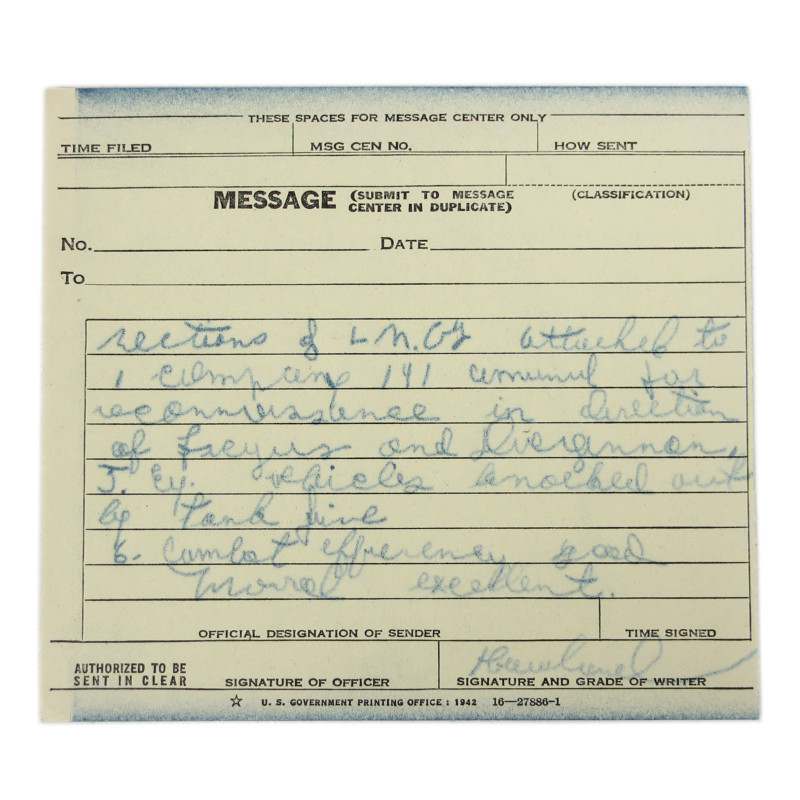 THESE SPACES FOR MESSAGE CENTER ONLY
TIME FILED MSG CEN NO. HOW SENT
MESSAGE (SUBMIT TO MESSAGE CENTER IN DUPLICATE) (CLASSIFICATION)
No. DATE
To
sections of L M.G's attached to
1 company 141 for
reconnissence in direction
of and
5. Ey. vehicles knocked out
by tank fire
6. Combat effirency good
Morral excellent.
OFFICIAL DESIGNATION OF SENDER TIME SIGNED
AUTHORIZED TO BE SENT IN CLEAR SIGNATURE OF OFFICER SIGNATURE AND GRADE OF WRITER
☆ U. S. GOVERNMENT PRINTING OFFICE : 1942 16—27886-1